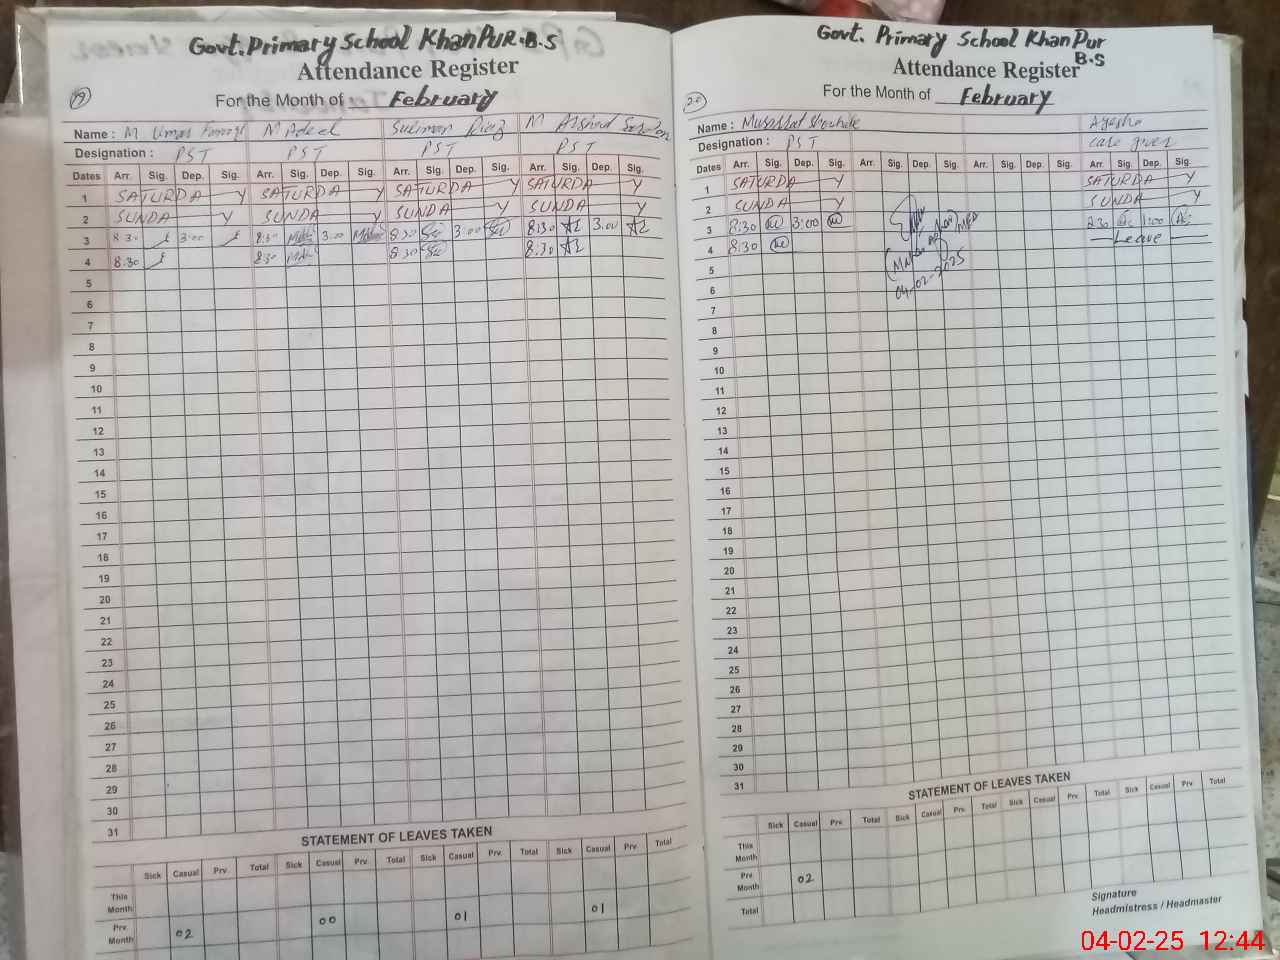 Govt. Primary School KhanPUR.B.S
Attendance Register
19
For the Month of February
Name : M Umar Farooq M Adeel Suleman Riaz M Arshad
Designation : PST PST PST PST
Dates Arr. Sig. Dep. Sig. Arr. Sig. Dep. Sig. Arr. Sig. Dep. Sig. Arr. Sig. Dep. Sig.
1 SATURDA Y SATURDA Y SATURDA Y SATURDA Y
2 SUNDA Y SUNDA Y SUNDA Y SUNDA Y
3 8:30 3:00 8:30 3:00 8:30 3:00 8:30 3:00
4 8:30 8:30 8:30 8:30
5
6
7
8
9
10
11
12
13
14
15
16
17
18
19
20
21
22
23
24
25
26
27
28
29
30
31
STATEMENT OF LEAVES TAKEN
Sick Casual Prv. Total Sick Casual Prv. Total Sick Casual Prv. Total Sick Casual Prv. Total
This Month
Prv. Month 02 00 01 01
Govt. Primary School KhanPur
B.S
Attendance Register
20
For the Month of February
Name : Ayesha
Designation : PST care giver
Dates Arr. Sig. Dep. Sig. Arr. Sig. Dep. Sig. Arr. Sig. Dep. Sig. Arr. Sig. Dep. Sig.
1 SATURDA Y SATURDA Y
2 SUNDA Y SUNDA Y
3 8:30 3:00 1:00
4 8:30 Leave
04-02-2025
5
6
7
8
9
10
11
12
13
14
15
16
17
18
19
20
21
22
23
24
25
26
27
28
29
30
31
STATEMENT OF LEAVES TAKEN
Sick Casual Prv. Total Sick Casual Prv. Total Sick Casual Prv. Total Sick Casual Prv. Total
This Month
Prv. Month 02
Total
Signature
Headmistress / Headmaster
04-02-25 12:44